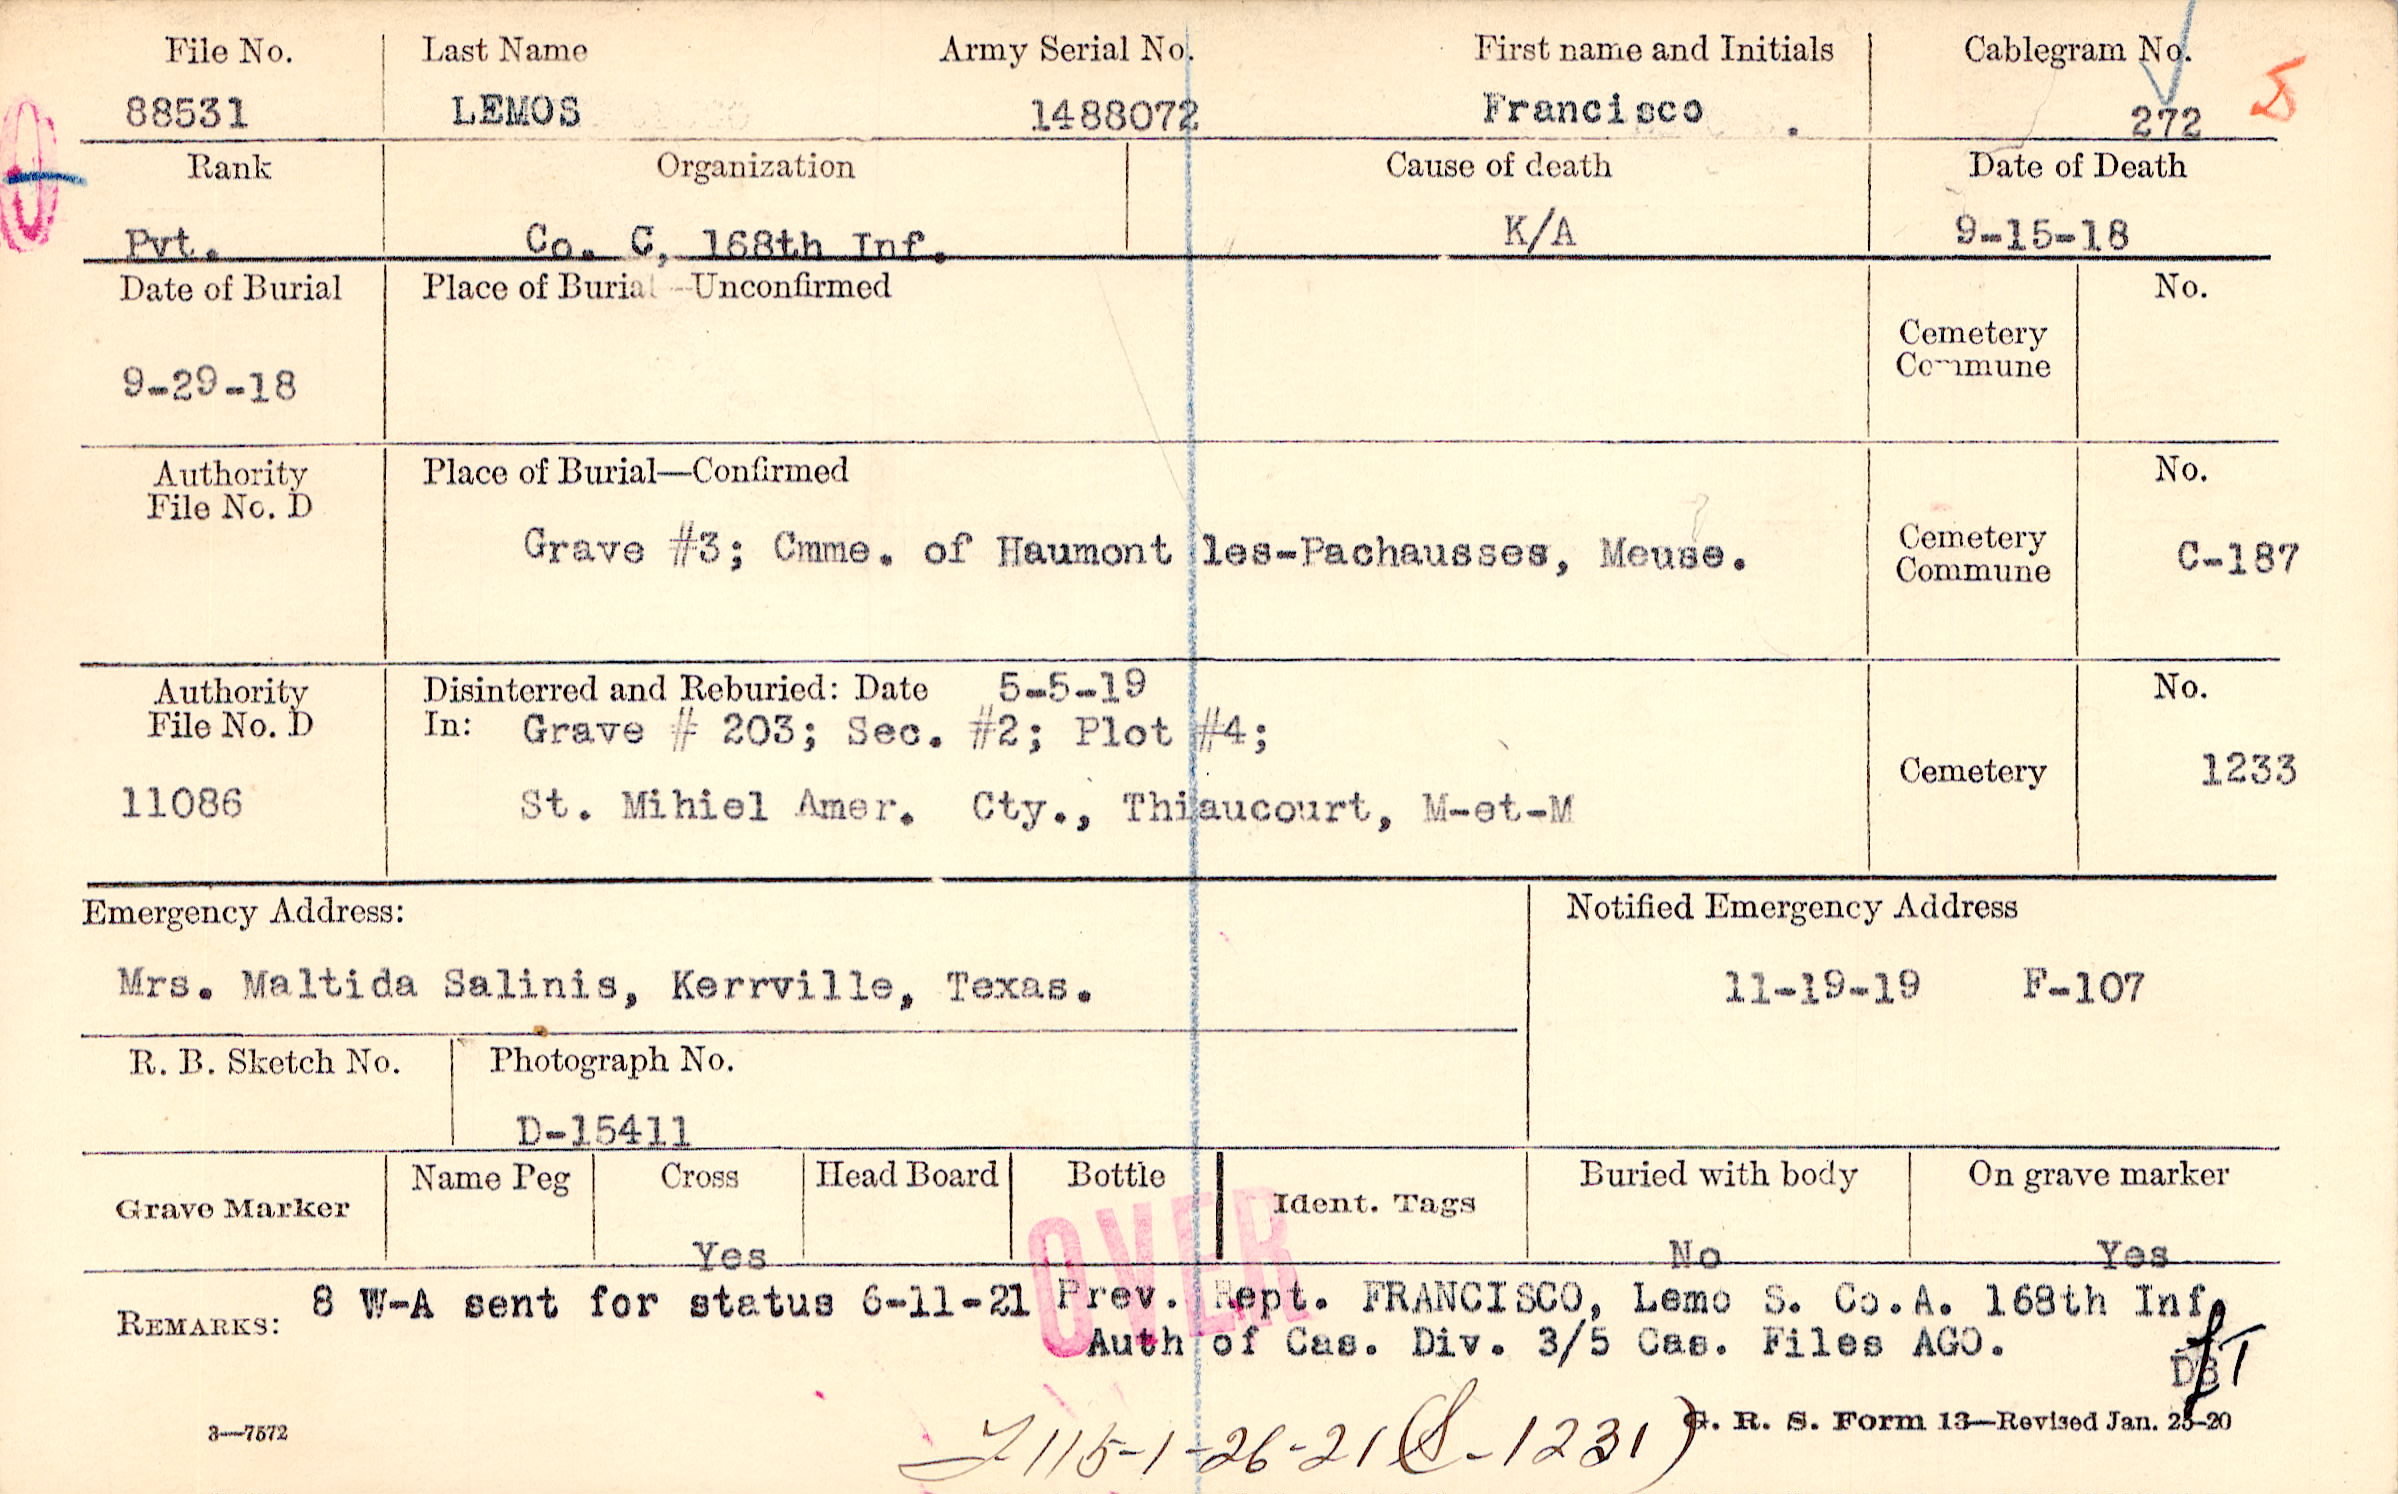 File No. Last Name Army Serial No. First name and Initials Cablegram No.
88531 LEMOS 1488072 Francisco 272
Rank Organization Cause of death Date of Death
Pvt. Co. C, 168th Inf. K/A 9-15-18
Date of Burial Place of Burial—Unconfirmed No.
Cemetery
Commune
9-29-18
Authority Place of Burial—Confirmed No.
File No. D
Grave #3; Cmme. of Haumont les-Pachausses, Meuse. Cemetery
Commune C-187
Authority Disinterred and Reburied: Date 5-5-19 No.
File No. D In: Grave # 203; Sec. #2; Plot #4;
Cemetery 1233
11086 St. Mihiel Amer. Cty., Thiaucourt, M-et-M
Emergency Address: Notified Emergency Address
Mrs. Maltida Salinis, Kerrville, Texas. 11-19-19 F-107
R. B. Sketch No. Photograph No.
D-15411
Grave Marker Name Peg Cross Head Board Bottle Ident. Tags Buried with body On grave marker
Yes No Yes
OVER
REMARKS: 8 W-A sent for status 6-11-21 Prev. Rept. FRANCISCO, Lemo S. Co.A. 168th Inf.
Auth of Cas. Div. 3/5 Cas. Files AGO.
DB
115-1-26-21 (S-1231)
3—7572 G. R. S. Form 13—Revised Jan. 25-20